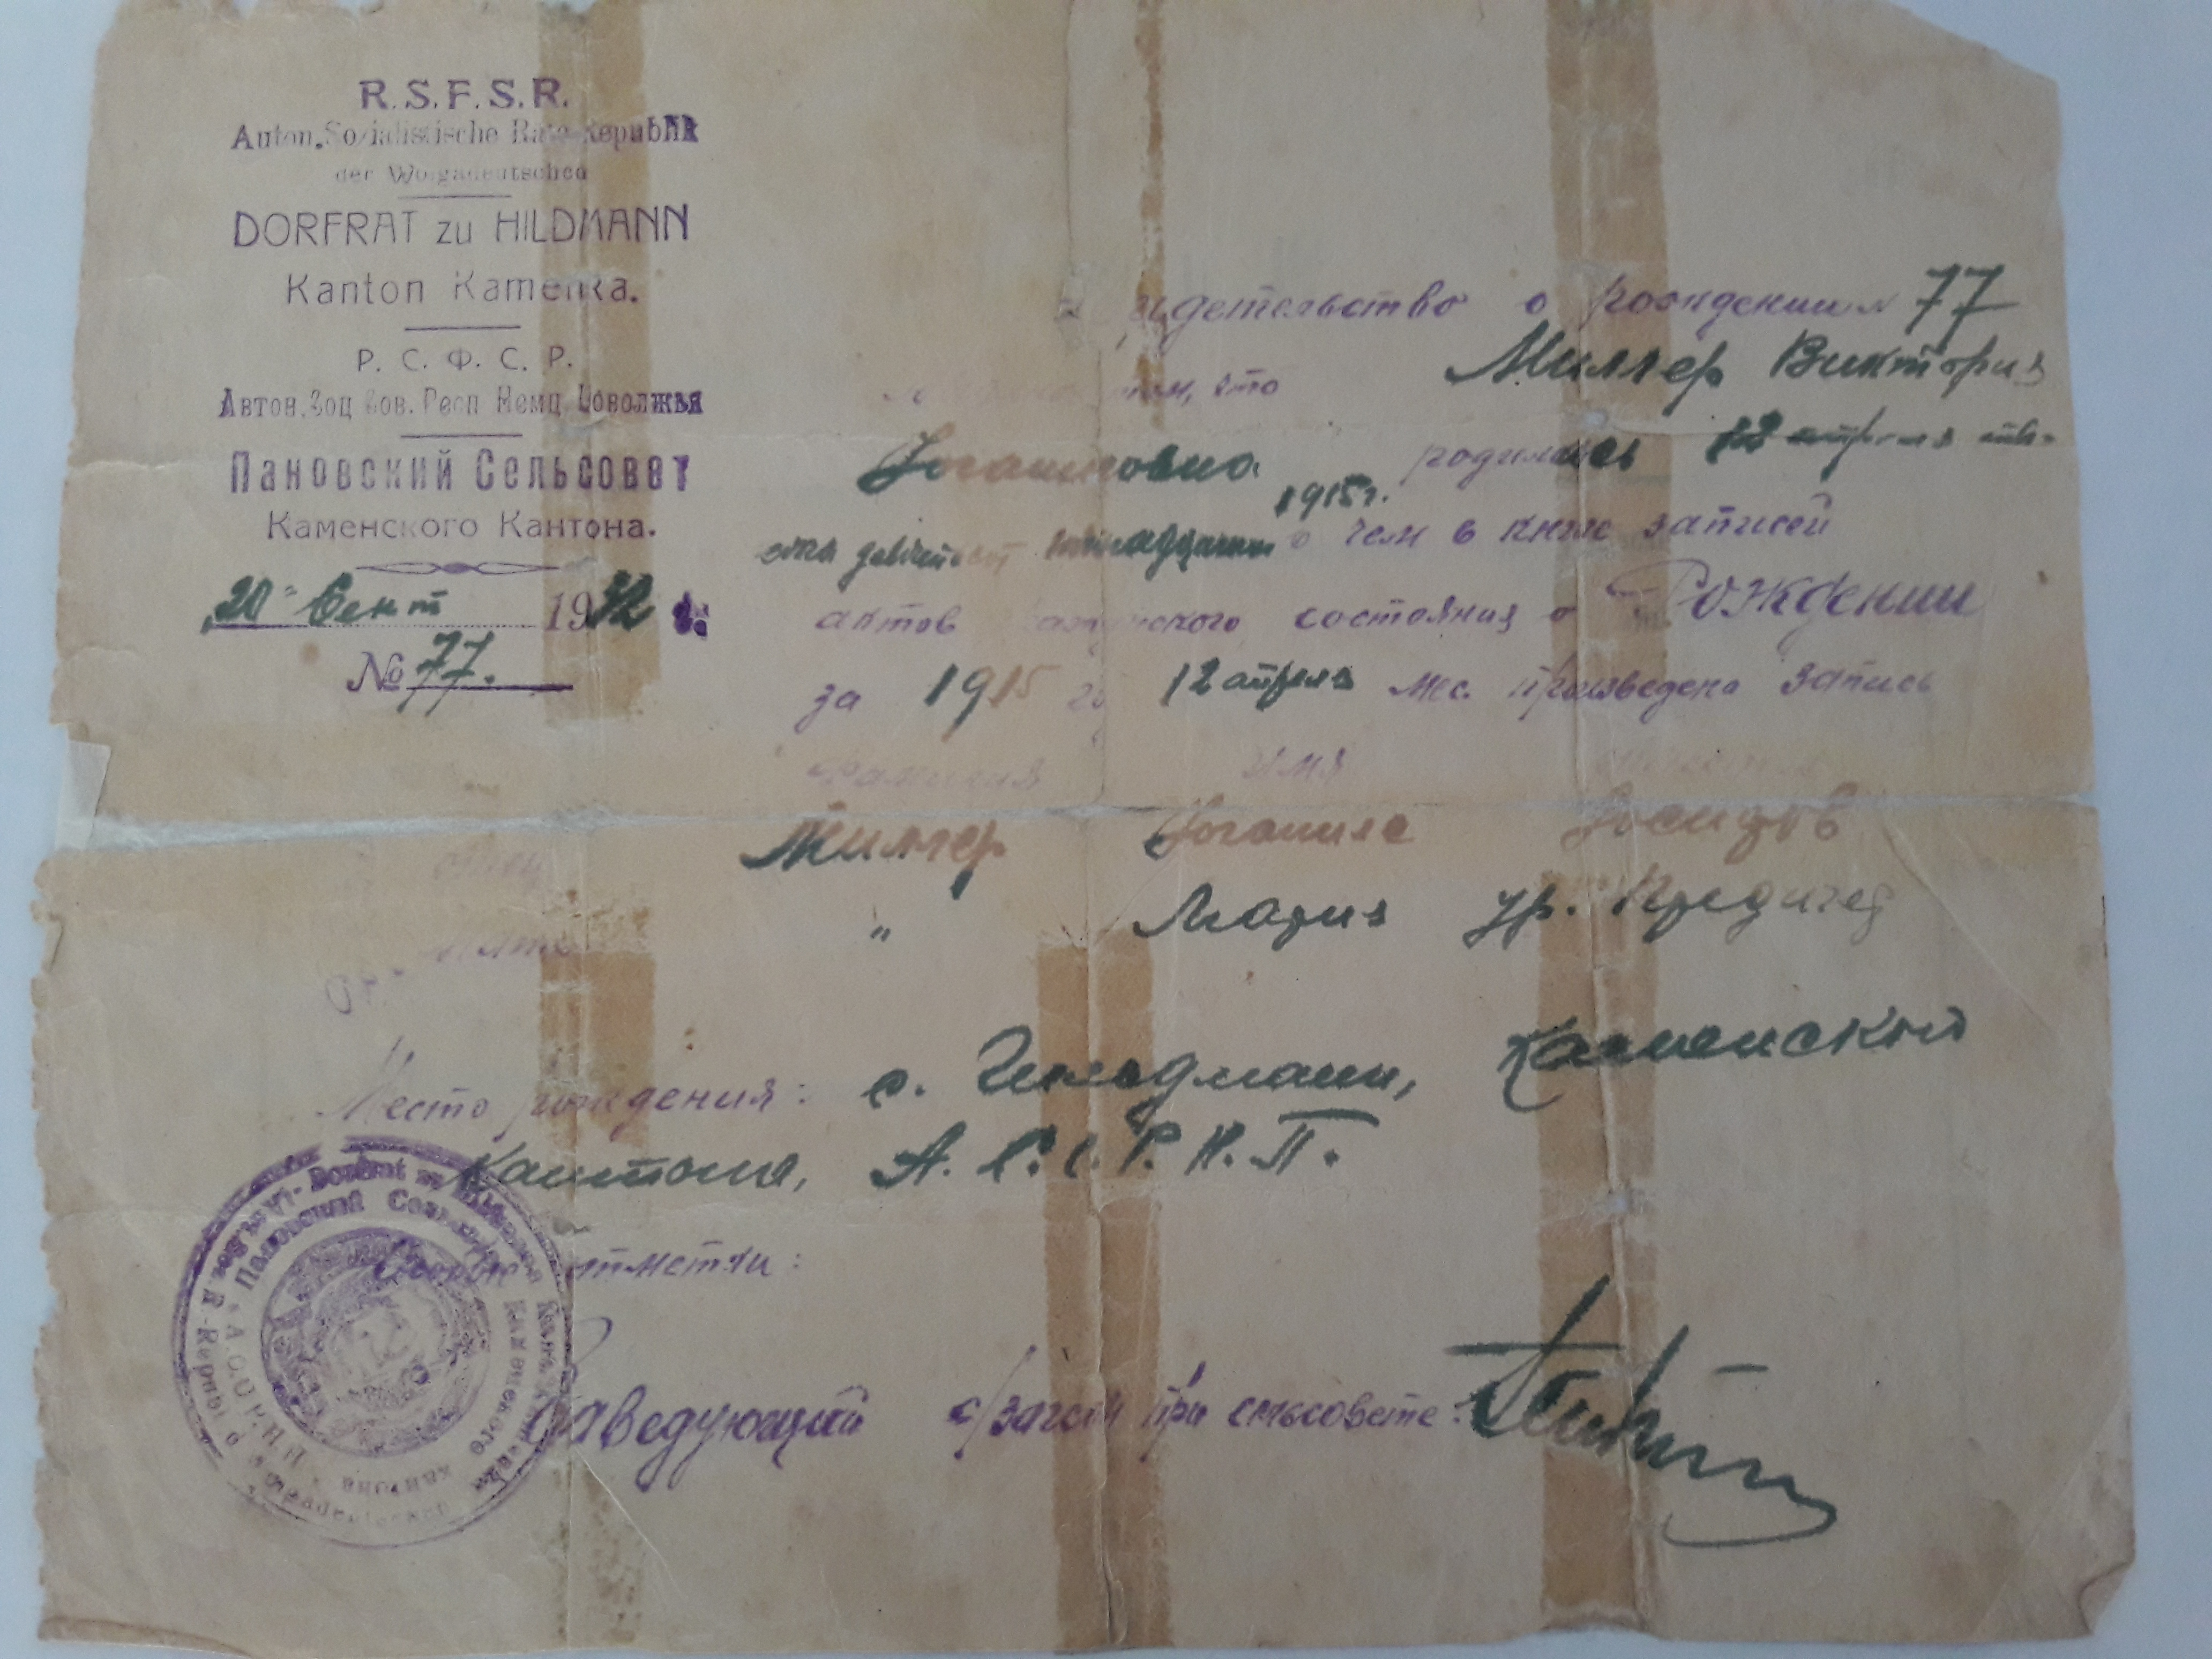 R.S.F.S.R.
Auton. Sozialistische Räte-Republik
der Wolgadeutschen
DORFRAT zu HILDMANN
Kanton Kamenka.
Р. С. Ф. С. Р.
Автон. Соц Сов. Респ Немц Поволжья
Пановский Сельсовет
Каменского Кантона.
„20" Сент 1932
№ 77.
идетельство о рождении № 77
том, что Миллер Виктория
Иоганновна родилась 12 апреля
1915г.
девятьсот пятнадцатого о чем в книге записей
актов гражданского состояния о Рождении
за 1915 го 12 апреля мес. произведена запись
Фамилия Имя
Отец Миллер Иоганнес
Мать " Мария ур.
Место рождения: с. Гильдманн, Каменский
Кантона, А.С.С.Р.Н.П.
Особые отметки:
Заведующий с/загсом при сельсовете:
Dorfrat zu Hildmann Kant. Kamenka
Пановский Совет Каменского кантона
АССРНП